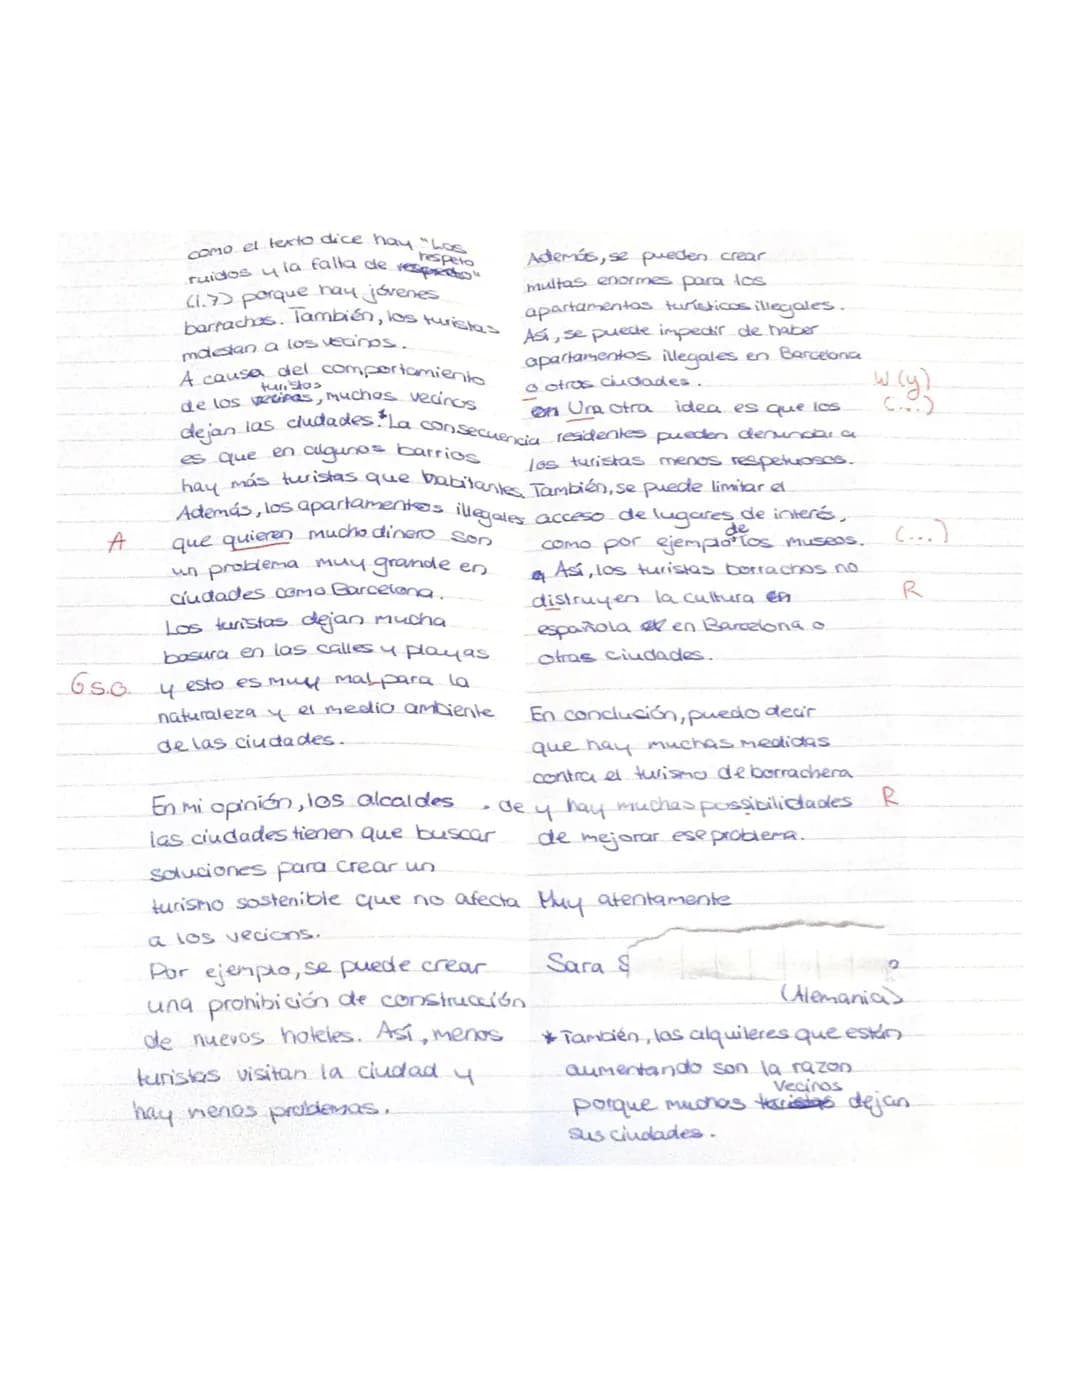 como el texto dice hay "Los
respeto
ruidos y la falta de
(l.7) porque hay jóvenes
barrachos. También, los turistas
molestan a los vecinos.
A causa del comportamiento
turistas
de los vecinos, muchos vecinos
dejan las ciudades.* La consecuencia
es que en algunos barrios
hay más turistas que habitantes.
Además, los apartamentos illegales
A que quieren mucho dinero son
un problema muy grande en
ciudades como Barcelona.
Los turistas dejan mucha
basura en las calles y playas
G s.o. y esto es muy mal para la
naturaleza y el medio ambiente
de las ciudades.
En mi opinión, los alcaldes de
las ciudades tienen que buscar
soluciones para crear un
turismo sostenible que no afecta
a los vecions.
Por ejemplo, se puede crear
una prohibición de construcción
de nuevos hoteles. Así, menos
turistas visitan la ciudad y
hay menos problemas.
Además, se pueden crear
multas enormes para los
apartamentos turísticos illegales.
Así, se puede impedir de haber
apartamentos illegales en Barcelona
o otros ciudades. W (y)
en Una otra idea es que los (...)
residentes pueden denunciar a
los turistas menos respetuosos.
También, se puede limitar el
acceso de lugares de interés,
de
como por ejemplo los museos. (...)
Así, los turistas borrachos no
distruyen la cultura en R
española en Barcelona o
otras ciudades.
En conclusión, puedo decir
que hay muchas medidas
contra el turismo de borrachera
y hay muchas possibilidades R
de mejorar ese problema.
Muy atentamente
Sara S
(Alemania)
* También, las alquileres que están
aumentando son la razon
vecinos
porque muchos turistas dejan
sus ciudades.